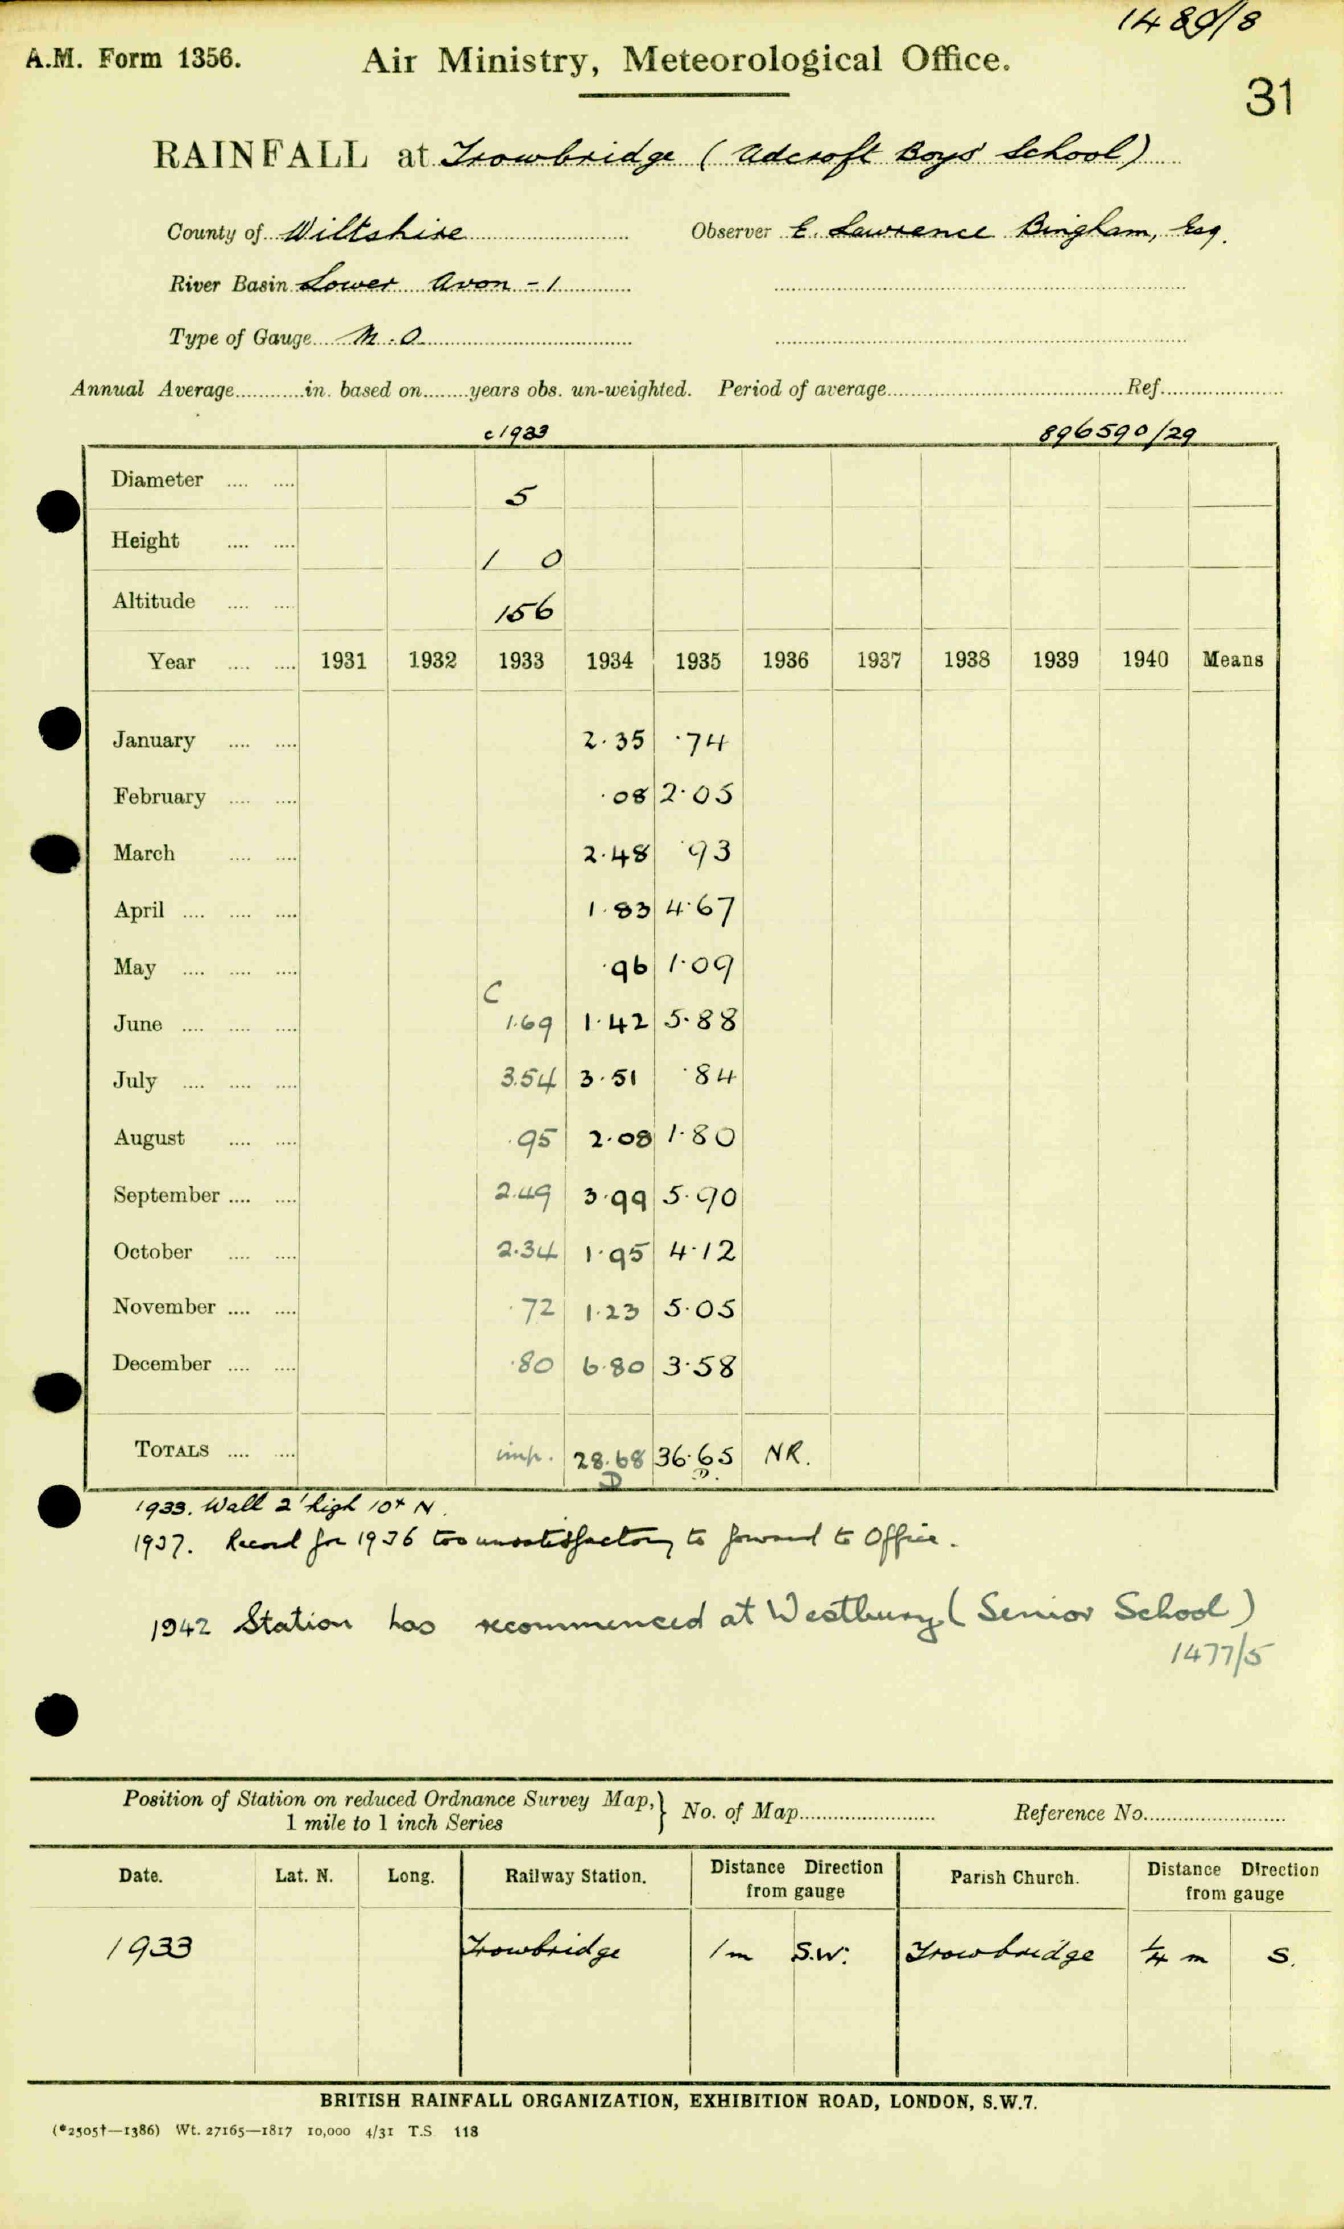 1480/8
A.M. Form 1356. Air Ministry, Meteorological Office.
31
RAINFALL at Trowbridge (Adcroft Boys' School)
County of Wiltshire Observer E. Lawrence Bingham, Esq.
River Basin Lower Avon - 1
Type of Gauge M.O.
Annual Average in. based on years obs. un-weighted. Period of average Ref.
c1933 896590/29
Diameter 5
Height 1 0
Altitude 156
Year 1931 1932 1933 1934 1935 1936 1937 1938 1939 1940 Means
January 2.35 .74
February .08 2.05
March 2.48 .93
April 1.83 4.67
May .96 1.09
C
June 1.69 1.42 5.88
July 3.54 3.51 .84
August .95 2.08 1.80
September 2.49 3.99 5.90
October 2.34 1.95 4.12
November .72 1.23 5.05
December .80 6.80 3.58
TOTALS imp. 28.68 36.65 NR.
D D.
1933. Wall 2' high 10+ N.
1937. Record for 1936 too unsatisfactory to forward to Office.
1942 Station has recommenced at Westbury (Senior School)
1477/5
Position of Station on reduced Ordnance Survey Map, 1 mile to 1 inch Series } No. of Map Reference No.
Date. Lat. N. Long. Railway Station. Distance Direction from gauge Parish Church. Distance Direction from gauge
1933 Trowbridge 1 m S.W. Trowbridge ¼ m S.
BRITISH RAINFALL ORGANIZATION, EXHIBITION ROAD, LONDON, S.W.7.
(*2505†—1386) Wt. 27165—1817 10,000 4/31 T.S 118